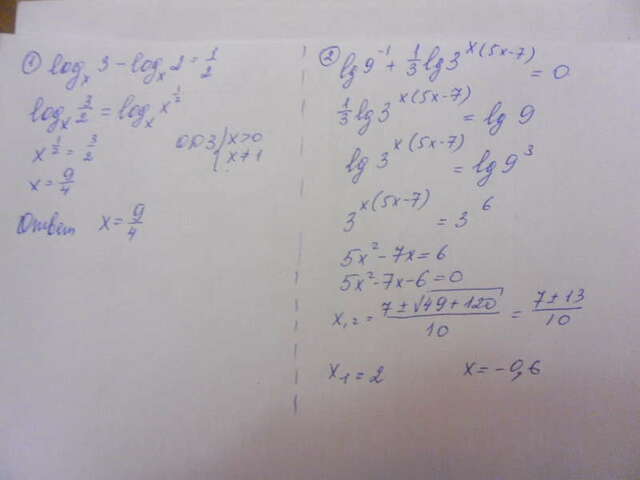 ① log_x 3 - log_x 2 = 1/2
log_x 3/2 = log_x x^(1/2)
x^(1/2) = 3/2
ОДЗ { x>0
x≠1
x = 9/4
Ответ x = 9/4
② lg 9^(-1) + 1/3 lg 3^(x(5x-7)) = 0
1/3 lg 3^(x(5x-7)) = lg 9
lg 3^(x(5x-7)) = lg 9^3
3^(x(5x-7)) = 3^6
5x² - 7x = 6
5x² - 7x - 6 = 0
x₁,₂ = (7 ± √(49 + 120))/10 = (7 ± 13)/10
x₁ = 2 x = -0,6